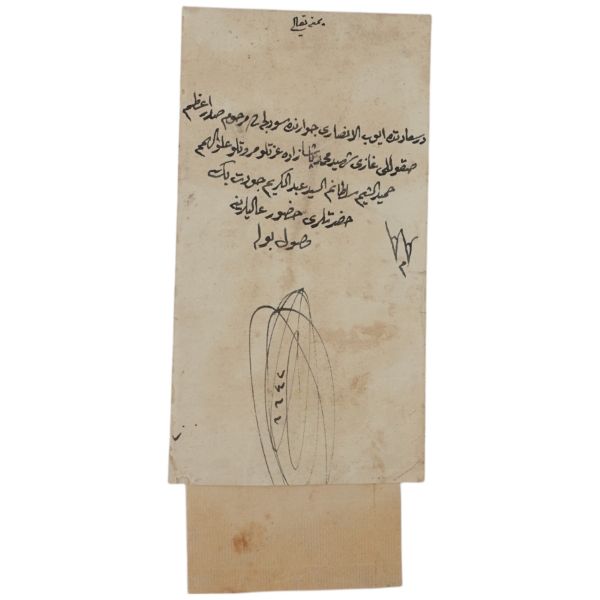 بمنه تعالى
در سعادتده ايوب الانصارى جوارنده مرحوم صدر اعظم
صقوللى غازى شهيد محمد پاشا زاده عزتلو مروتلو على الهمم
حميد الشيم سلطانم السيد عبد الكريم جودت بك
حضرتلرى حضور عاليلرينه
وصول بوله
م